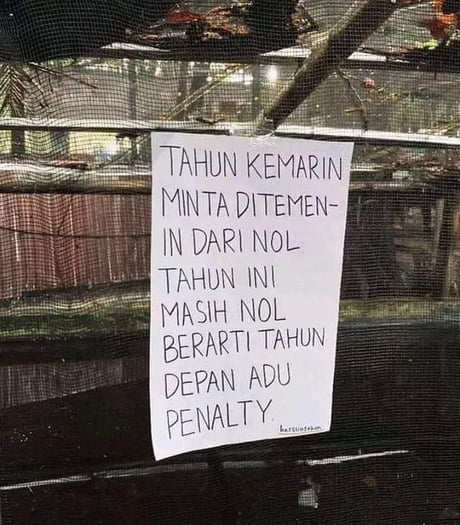 TAHUN KEMARIN
MINTA DITEMEN-
IN DARI NOL
TAHUN INI
MASIH NOL
BERARTI TAHUN
DEPAN ADU
PENALTY.